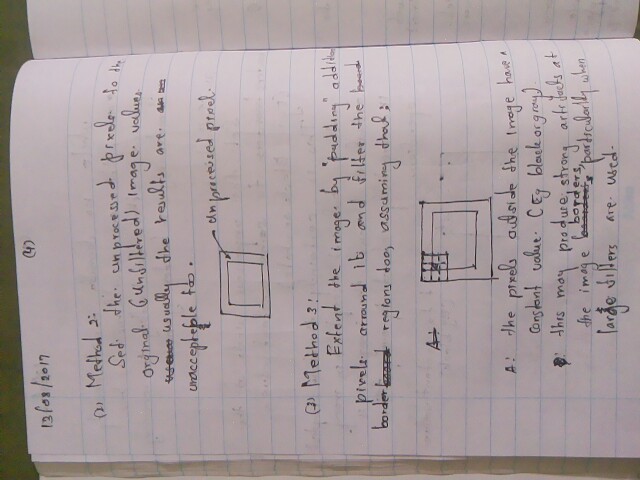 (4)
13/03/2017
(2) Method 2:
Set the unprocessed pixels to the
orginal (unfiltered) image values
usually the results are
unacceptable too.
unprocessed pixel.
(3) Method 3:
Extent the image by "padding" addition
pixels arround it and filter the
border regions too, assuming that:
A:
A: the pixels outside the image have a
constant value. (Eg black or gray)
this may produce strong artifacts at
the image borders, particularly when
large filters are used.